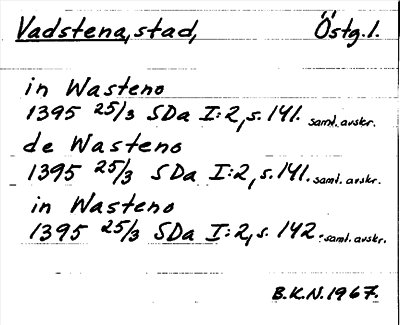 Vadstena, stad, Östg.l.
in Wasteno
1395 25/3 SDa I:2, s. 141. saml. avskr.
de Wasteno
1395 25/3 SDa I:2, s. 141. saml. avskr.
in Wasteno
1395 25/3 SDa I:2, s. 142. saml. avskr.
B.K.N. 1967.